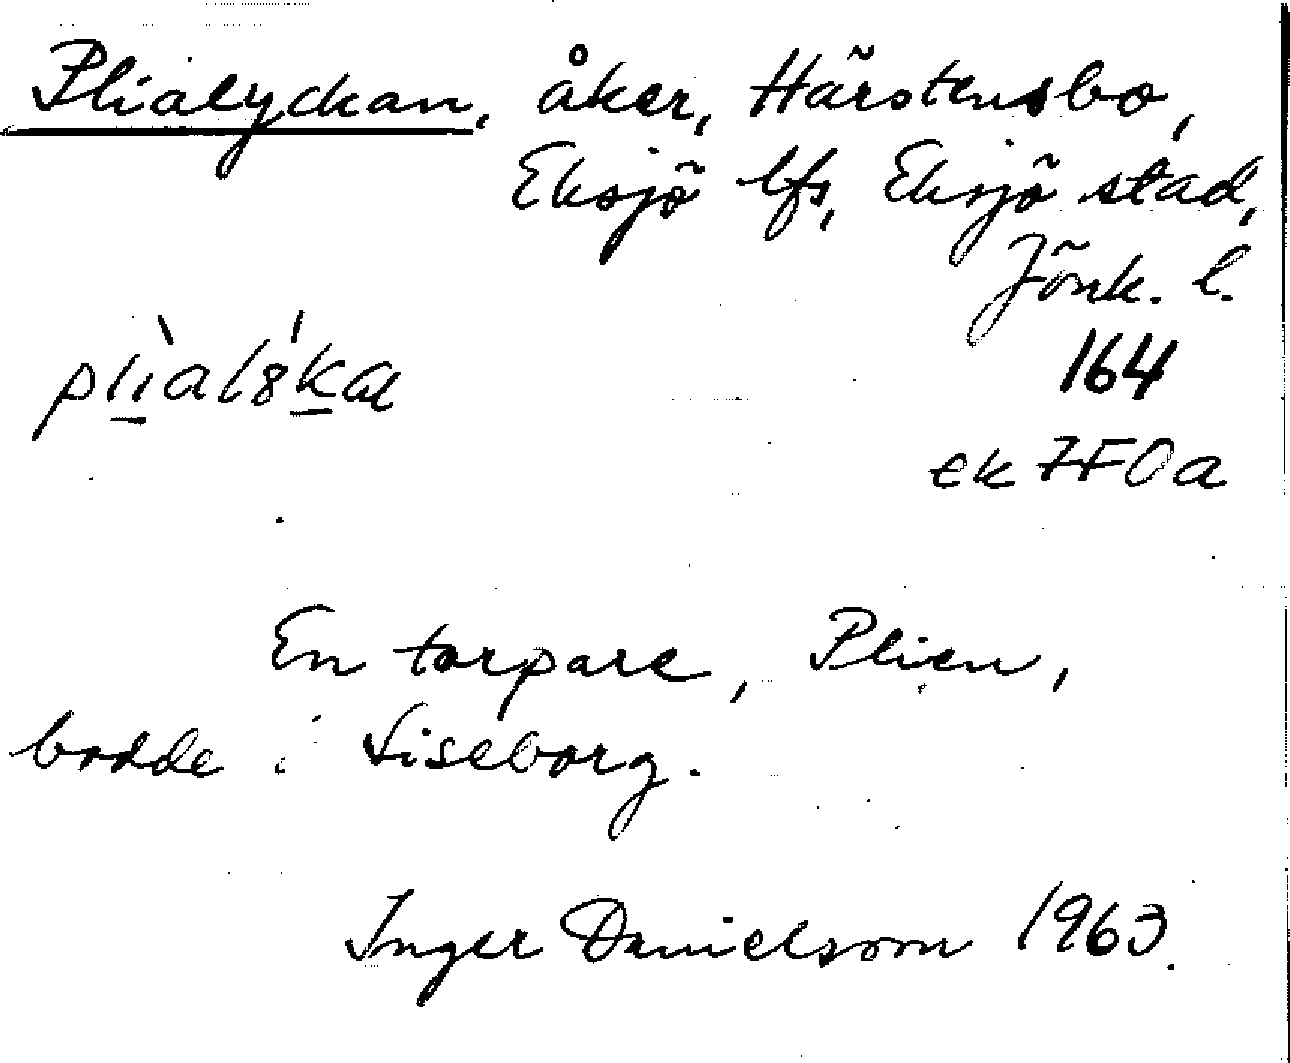 Plialyckan, åker, Härstensbo,
Eksjö lfs, Eksjö stad,
Jönk. l.
164
ek 7F0a
En torpare, Plien,
bodde i Liseborg.
Inger Danielsson 1963.